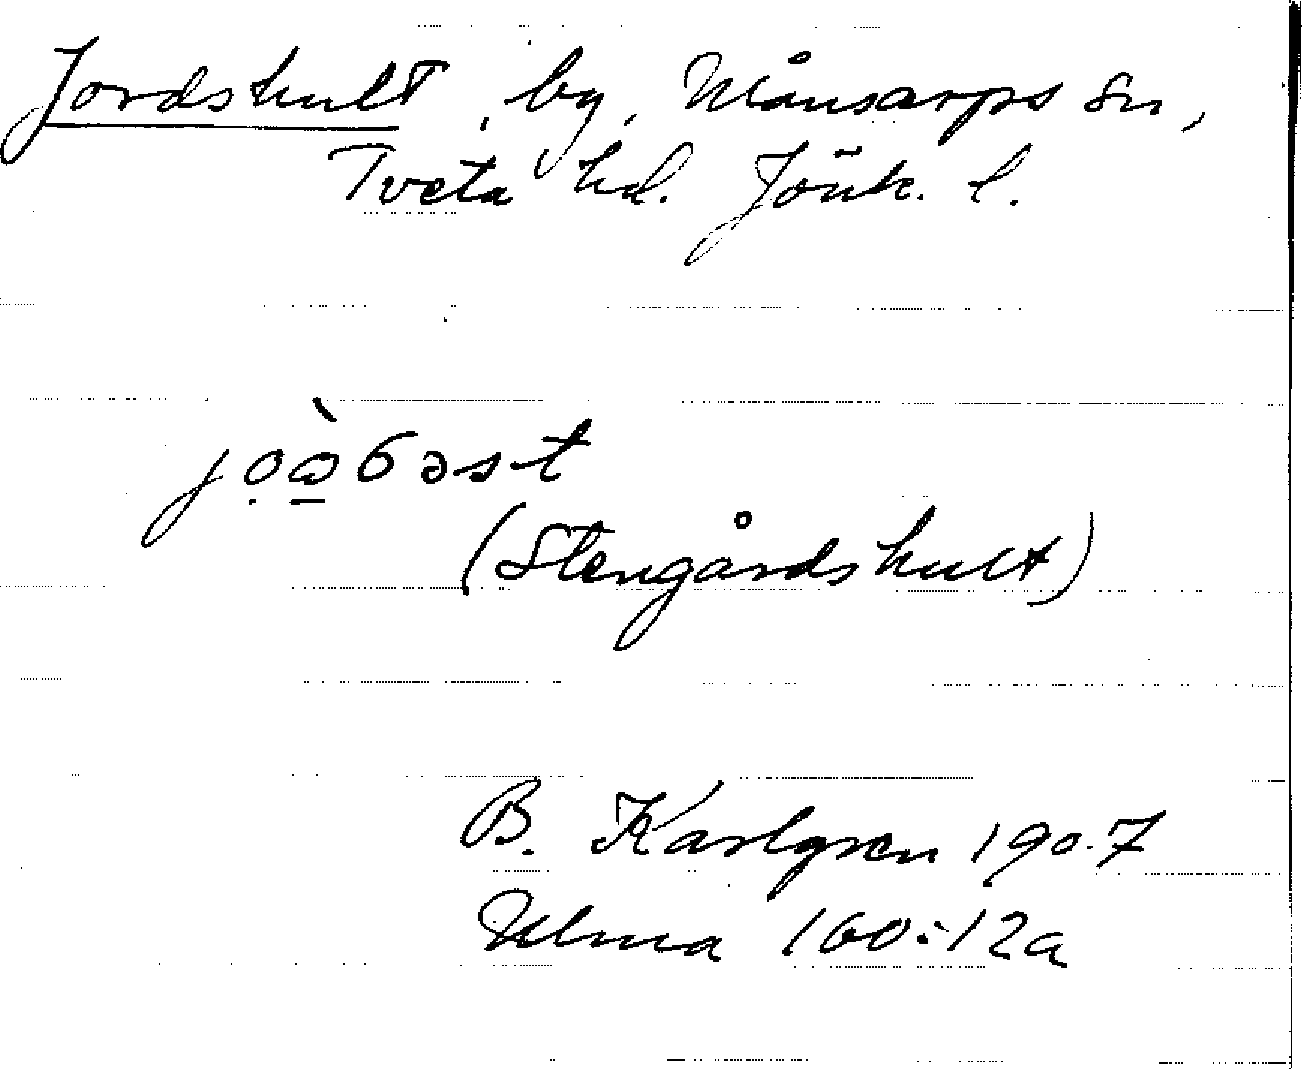 Jordshult, by, Månsarps sn,
Tveta hd. Jönk. l.
(Stengårdshult)
B. Karlgren 1907
Ulma 160:12a